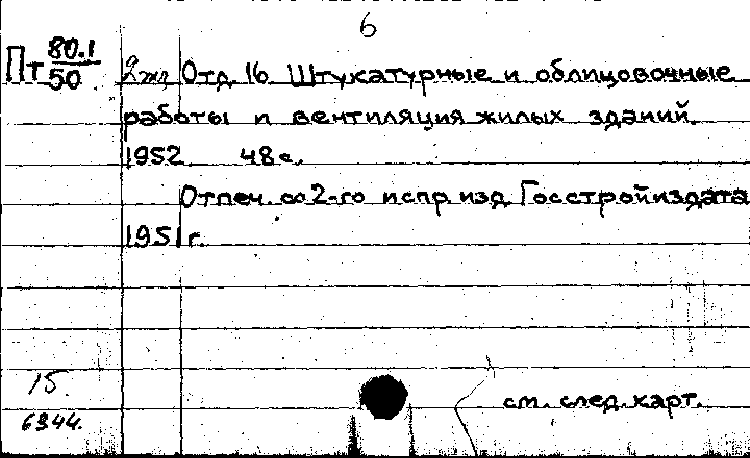 6
Пт 80.1/50 2 экз Отд. 16 Штукатурные и облицовочные
работы и вентиляция жилых зданий.
1952 48 с.
Отпеч. со 2-го испр. изд. Госстройиздата
1951 г.
15.
6344.
см. след. карт.